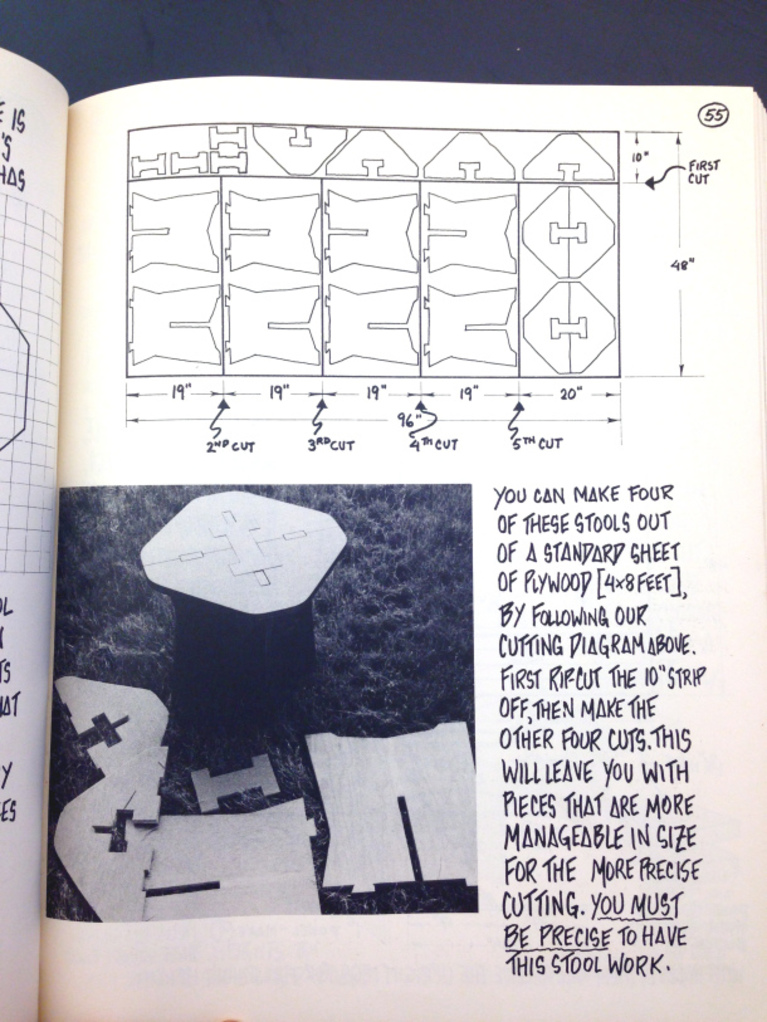 E IS
'S
HAS
55
10"
FIRST
CUT
48"
19" 19" 19" 19" 20"
96"
2ND CUT 3RD CUT 4TH CUT 5TH CUT
YOU CAN MAKE FOUR
OF THESE STOOLS OUT
OF A STANDARD SHEET
OF PLYWOOD [4x8 FEET],
BY FOLLOWING OUR
CUTTING DIAGRAM ABOVE.
FIRST RIP-CUT THE 10" STRIP
OFF, THEN MAKE THE
OTHER FOUR CUTS. THIS
WILL LEAVE YOU WITH
PIECES THAT ARE MORE
MANAGEABLE IN SIZE
FOR THE MORE PRECISE
CUTTING. YOU MUST
BE PRECISE TO HAVE
THIS STOOL WORK.